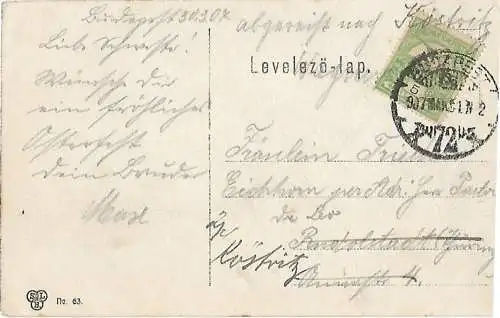 Budapest 30.3.07
Liebe Schwester!
Wünsche Dir
ein fröhliches
Osterfest
Dein Bruder
Max
abgereist nach Köstritz
Levelező-lap.
BUDAPEST
907 MÁR 31 N 2
72
Fräulein
Eichhorn per Adr: Herr
de Bo
Rudolstadt
Köstritz
4.
No. 63.